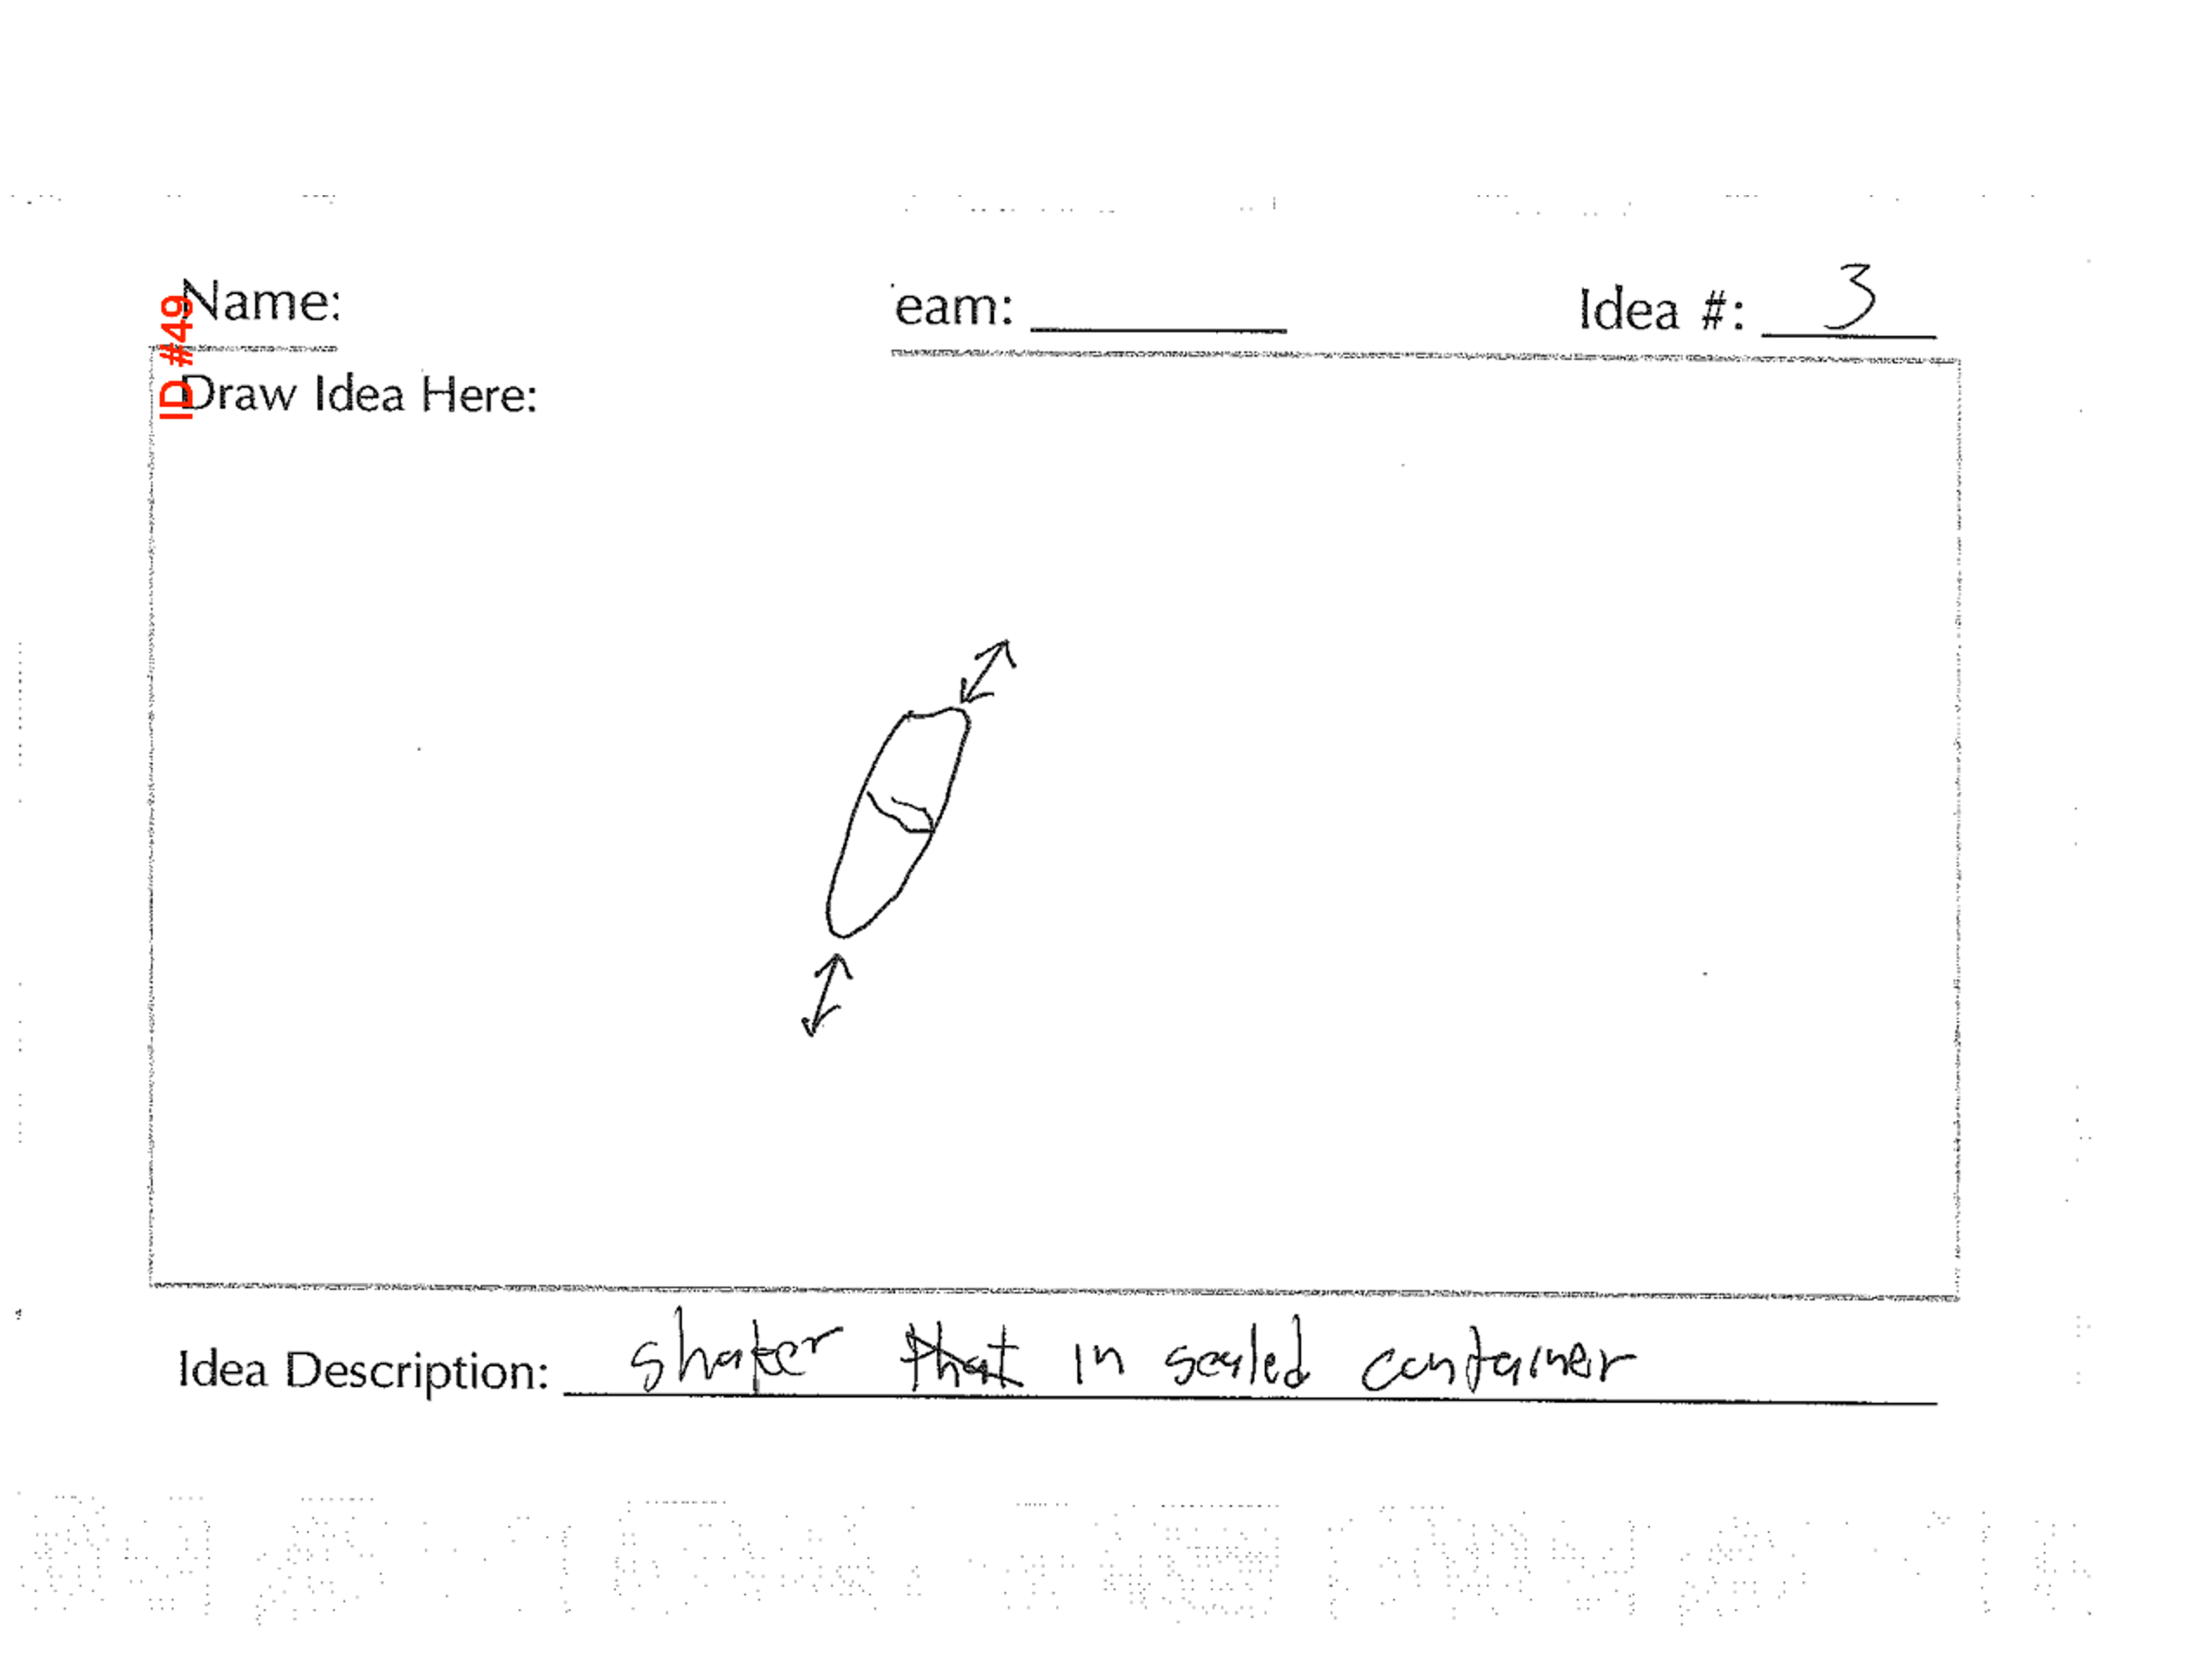 Name: eam: Idea #: 3
ID #49
Draw Idea Here:
Idea Description: shaker that in sealed container